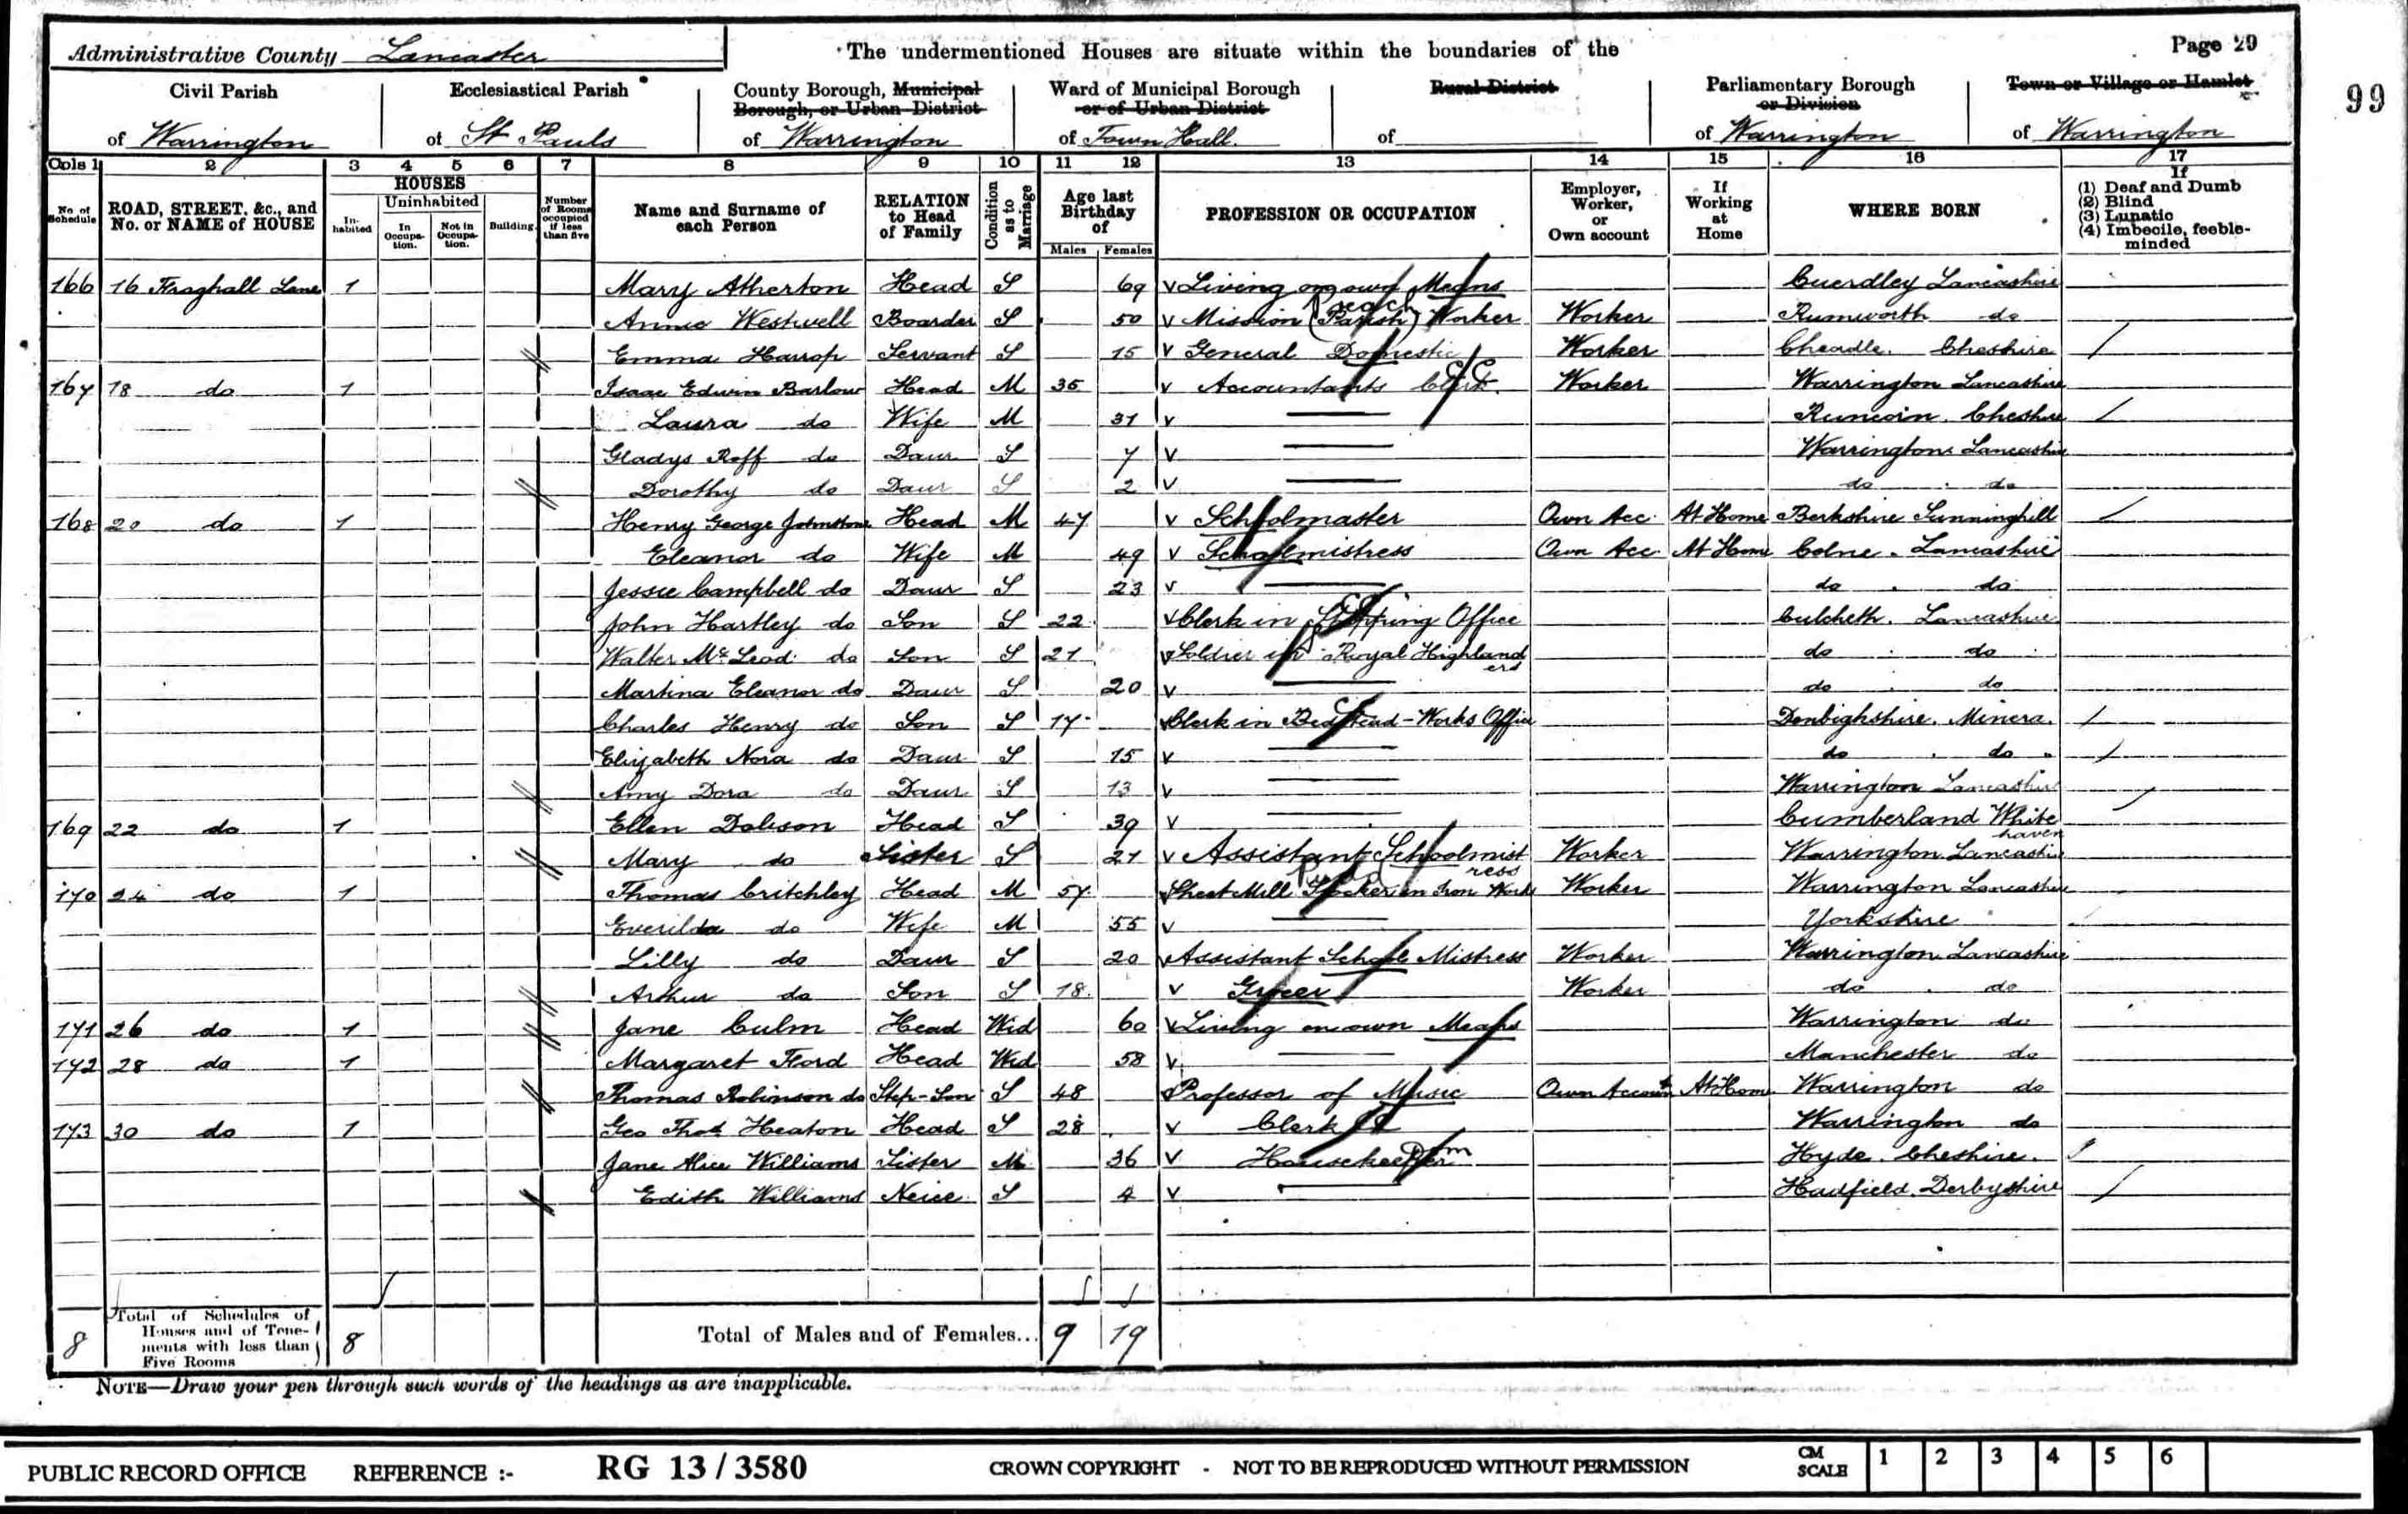 Administrative County Lancaster
The undermentioned Houses are situate within the boundaries of the
Page 29
99
Civil Parish of Warrington
Ecclesiastical Parish of St Pauls
County Borough, Municipal Borough, or Urban District of Warrington
Ward of Municipal Borough or of Urban District of Town Hall.
Rural District of
Parliamentary Borough or Division of Warrington
Town or Village or Hamlet of Warrington
Cols 1 2 3 4 5 6 7 8 9 10 11 12 13 14 15 16 17
No. of Schedule
ROAD, STREET, &c., and No. or NAME of HOUSE
HOUSES
Inhabited
Uninhabited
In Occupation.
Not in Occupation.
Building.
Number of Rooms occupied if less than five
Name and Surname of each Person
RELATION to Head of Family
Condition as to Marriage
Age last Birthday of
Males Females
PROFESSION OR OCCUPATION
Employer, Worker, or Own account
If Working at Home
WHERE BORN
If
(1) Deaf and Dumb
(2) Blind
(3) Lunatic
(4) Imbecile, feeble-minded
166 16 Froghall Lane 1 Mary Atherton Head S 69 Living on own Means Cuerdley Lancashire
Annie Westwell Boarder S 50 Mission (Parish) Worker Worker Rumworth do
Emma Harrop Servant S 15 General Domestic Worker Cheadle. Cheshire
167 18 do 1 Isaac Edwin Barlow Head M 35 Accountants Clerk. Worker Warrington Lancashire
Laura do Wife M 31 Runcorn. Cheshire
Gladys Roff do Daur S 7 Warrington Lancashire
Dorothy do Daur S 2 do do
168 20 do 1 Henry George Johnstone Head M 47 Schoolmaster Own Acc. At Home Berkshire Sunninghill
Eleanor do Wife M 49 Schoolmistress Own Acc. At Home Colne. Lancashire
Jessie Campbell do Daur S 23 do do
John Hartley do Son S 22 Clerk in Shipping Office Culcheth. Lancashire
Walter McLeod do Son S 21 Soldier in Royal Highlanders do do
Martina Eleanor do Daur S 20 do do
Charles Henry do Son S 17 Clerk in Bedstead-Works Office Denbighshire. Minera.
Elizabeth Nora do Daur S 15 do do
Amy Dora do Daur S 13 Warrington Lancashire
169 22 do 1 Ellen Dobson Head S 39 Cumberland Whitehaven
Mary do Sister S 21 Assistant Schoolmistress Worker Warrington Lancashire
170 24 do 1 Thomas Critchley Head M 57 Sheet Mill in Iron Works Worker Warrington Lancashire
Everilda do Wife M 55 Yorkshire
Lilly do Daur S 20 Assistant School Mistress Worker Warrington Lancashire
Arthur do Son S 18 Grocer Worker do do
171 26 do 1 Jane Culm Head Wid 60 Living on own Means Warrington do
172 28 do 1 Margaret Ford Head Wid 58 Manchester do
Thomas Robinson do Step-Son S 48 Professor of Music Own Account At Home Warrington do
173 30 do 1 Geo Thos Heaton Head S 28 Clerk Warrington do
Jane Alice Williams Sister M 36 Housekeeper Hyde. Cheshire.
Edith Williams Neice S 4 Hadfield. Derbyshire
8 Total of Schedules of Houses and of Tenements with less than Five Rooms 8 Total of Males and of Females... 9 19
NOTE—Draw your pen through such words of the headings as are inapplicable.
PUBLIC RECORD OFFICE REFERENCE :- RG 13 / 3580 CROWN COPYRIGHT - NOT TO BE REPRODUCED WITHOUT PERMISSION CM SCALE 1 2 3 4 5 6